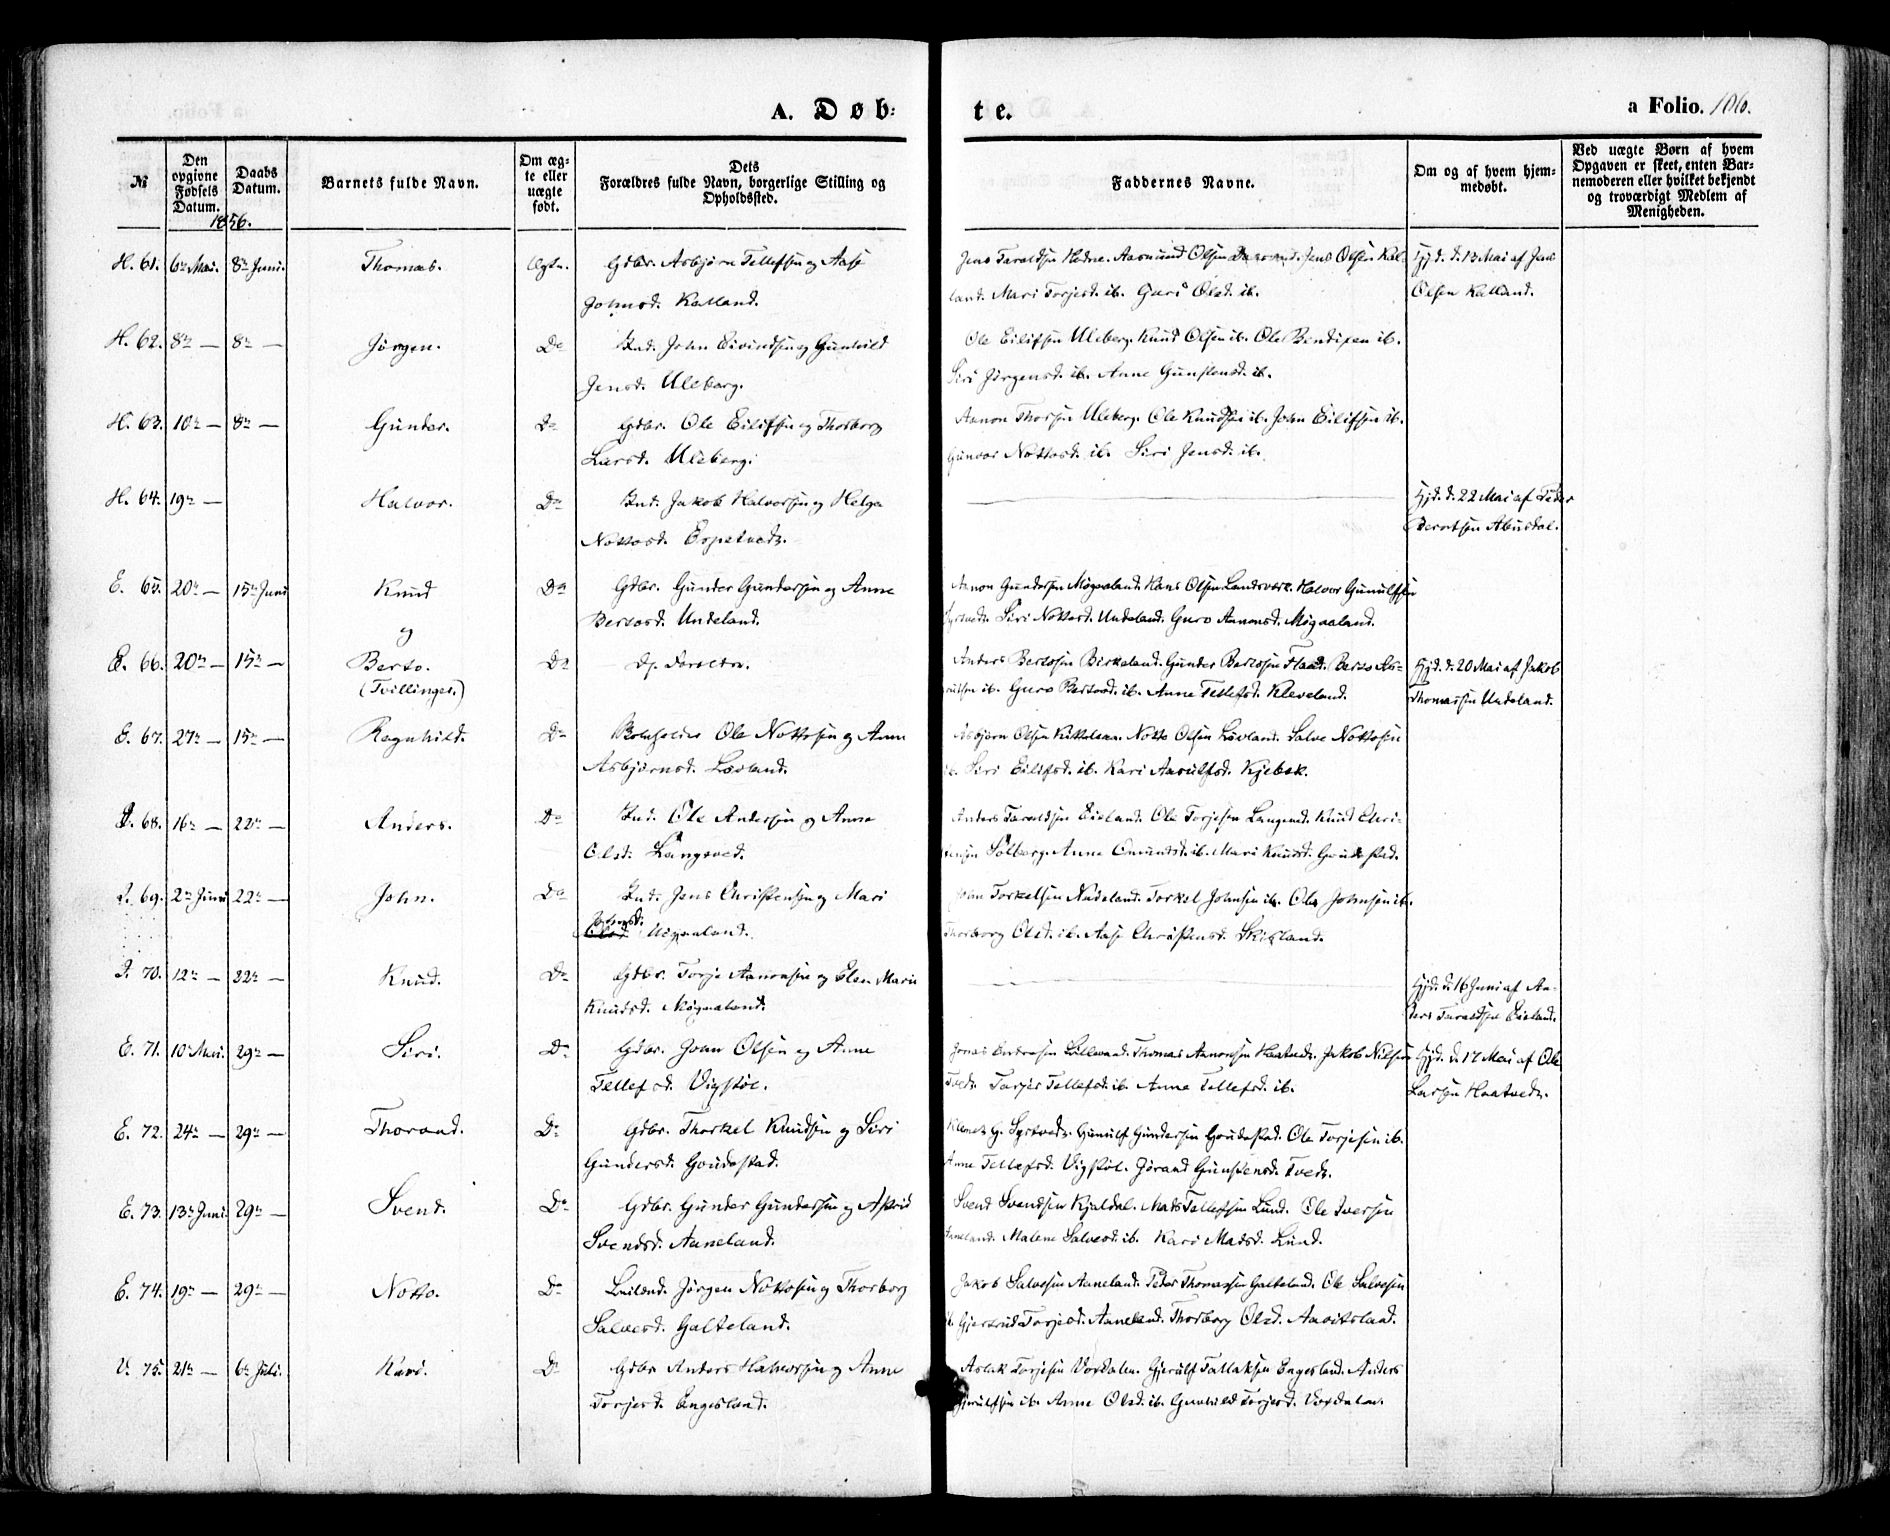 A. Døb:
te.
a Folio. 106.
№
Den opgivne Fødsels Datum.
Daabs Datum.
Barnets fulde Navn.
Om ægte eller uægte født.
Dets Forældres fulde Navn, borgerlige Stilling og Opholdssted.
Faddernes Navne.
Om og af hvem hjemmedøbt.
Ved uægte Børn af hvem Opgaven er skeet, enten Barnemoderen eller hvilket bekjendt og troværdigt Medlem af Menigheden.
1856.
H. 61. 6te Mai. 8de Juni. Thomas. Ægte. Gdbr. Asbjørn Tellefsen og Aase
Johnsd. Kalland.
Jens Taraldsen Hodne. Aasmund Olsen Jens Olsen Kal-
land. Mari Torjesd. ib. Guri Olsd. ib.
Hjd. d. 13 Mai af Jens
Olsen Kalland.
H. 62. 8de — 8de — Jørgen. Do Ind. John Eivindsen og Gunhild
Jensd. Uleberg.
Ole Eilifsen Uleberg. Knud Olsen ib. Ole Bendixen ib.
Siri Jørgensd. ib. Anne Gunstensd. ib.
H. 63. 10de — 8de — Gunder. Do Gdbr. Ole Eilifsen og Thorborg
Larsd. Uleberg.
Aanon Thorsen Uleberg. Ole Knudsen ib. John Eilifsen ib.
Gunvor Nottosd. ib. Siri Jensd. ib.
H. 64. 19de — Halvor. Do Ind. Jakob Halvorsen og Helga
Nottosd. Espetvedt.
Hjd. d. 22 Mai af Peder
Berntsen Abusdal.
E. 65. 20de — 15de Juni Knud Do Gdbr. Gunder Gundersen og Anne
Bertosd. Undeland.
Aanon Gundersen Møgaaland. Hans Olsen Landsverk. Halvor Gunulfsen
Syrtvedt. Siri Nottosd. Undeland. Guro Aanonsd. Møgaaland.
og
E. 66. 20de — 15de — Berto. Do D. Forældre.
(Tvillinger.)
Anders Bertosen Birkeland. Gunder Bertosen Flaad. Berto
ib. Guro Bertosd. ib. Anne Tellefsd. Kleveland.
Hjd. d. 20 Mai af Jakob
Thomassen Undeland.
E. 67. 27de — 15de — Ragnhild. Do Ole Nottosen og Anne
Asbjørnsd. Løvland.
Asbjørn Olsen Notto Olsen Løvland. Salve Nottosen
ib. Siri Eilifsd. ib. Kari Aasulfsd. Kjebek.
68. 16de — 22de — Anders. Do Ind. Ole Andersen og Anne
Olsd. Langeved.
Anders Taraldsen Eieland. Ole Torjesen Langeved. Knud Chri-
stensen Solberg. Anne Omundsd. ib. Mari Knudsd.
69. 2den Juni 22de — John. Do Ind. Jens Christensen og Mari
Johnsd.
Olsd. Møgaaland.
John Torkelsen Nødeland. Torkel Johnsen ib. Ole Johnsen ib.
Thorborg Olsd. ib. Aase Christensd. Skisland.
70. 12te — 22de — Knud. Do Gdbr. Torje Aanonsen og Elen Marie
Knudsd. Møgaaland.
Hjd. d. 16 Juni af An-
ders Taraldsen Eieland.
E. 71. 10de Mai. 29de — Siri. Do Gdbr. John Olsen og Anne
Tellefsd. Vigstøl.
Jonas Andersen Lillevand. Thomas Aanonsen Haatvedt. Jakob Nielsen
Tvedt. Torjer Tellefsd. ib. Anne Tellefsd. ib.
Hjd. d. 17 Mai af Ole
Larsen Haatvedt.
E. 72. 24de — 29de — Thorand. Do Gdbr. Thorkel Knudsen og Siri
Gundersd. Goudestad.
Klemet G. Syrtvedt. Gunulf Gundersen Goudestad. Ole Torjesen ib.
Anne Tellefsd. Vigstøl. Jørand Gunstensd. Tvedt.
E. 73. 13de Juni. 29de — Svend. Do Gdbr. Gunder Gundersen og Astrid
Svendsd. Aaneland.
Svend Svendsen Kjældal. Mats Tellefsen Lund. Ole Iversen
Aaneland. Malene Salvesd. ib. Kari Madsd. Lund.
E. 74. 19de — 29de — Notto. Do Leilænd. Jørgen Nottosen og Thorborg
Salvesd. Galteland.
Jakob Salvesen Aaneland. Peder Thomassen Galteland. Ole Salvesen
ib. Gjertrud Torjesd. Aaneland. Thorborg Olsd. Aavitsland.
V. 75. 21de — 6te Juli. Kari. Do Gdbr. Anders Halvorsen og Anne
Torjesd. Engesland.
Aslak Torjesen Vordalen. Gjerulf Tallaksen Engesland. Anders
Gjerulfsen ib. Anne Olsd. ib. Gunhild Torjesd. Vordalen.